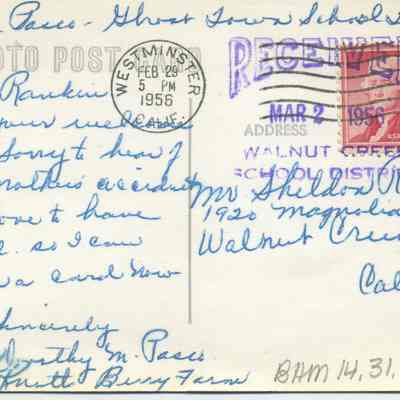 Pasco - Ghost Town School
OTO POST CARD
WESTMINSTER
FEB 29
5 PM
1956
CALIF.
RECEIVE
MAR 2 1956
ADDRESS
WALNUT CREE
SCHOOL DISTRI
Rankin
our welcome
Sorry to hear of
mothers accident
ove to have
so I can
a card now
Mr Sheldon R
1920 Magnolia
Walnut Cree
Cal
incerely
Dorothy M. Pasco
Knott Berry Farm
BHM 14.31.